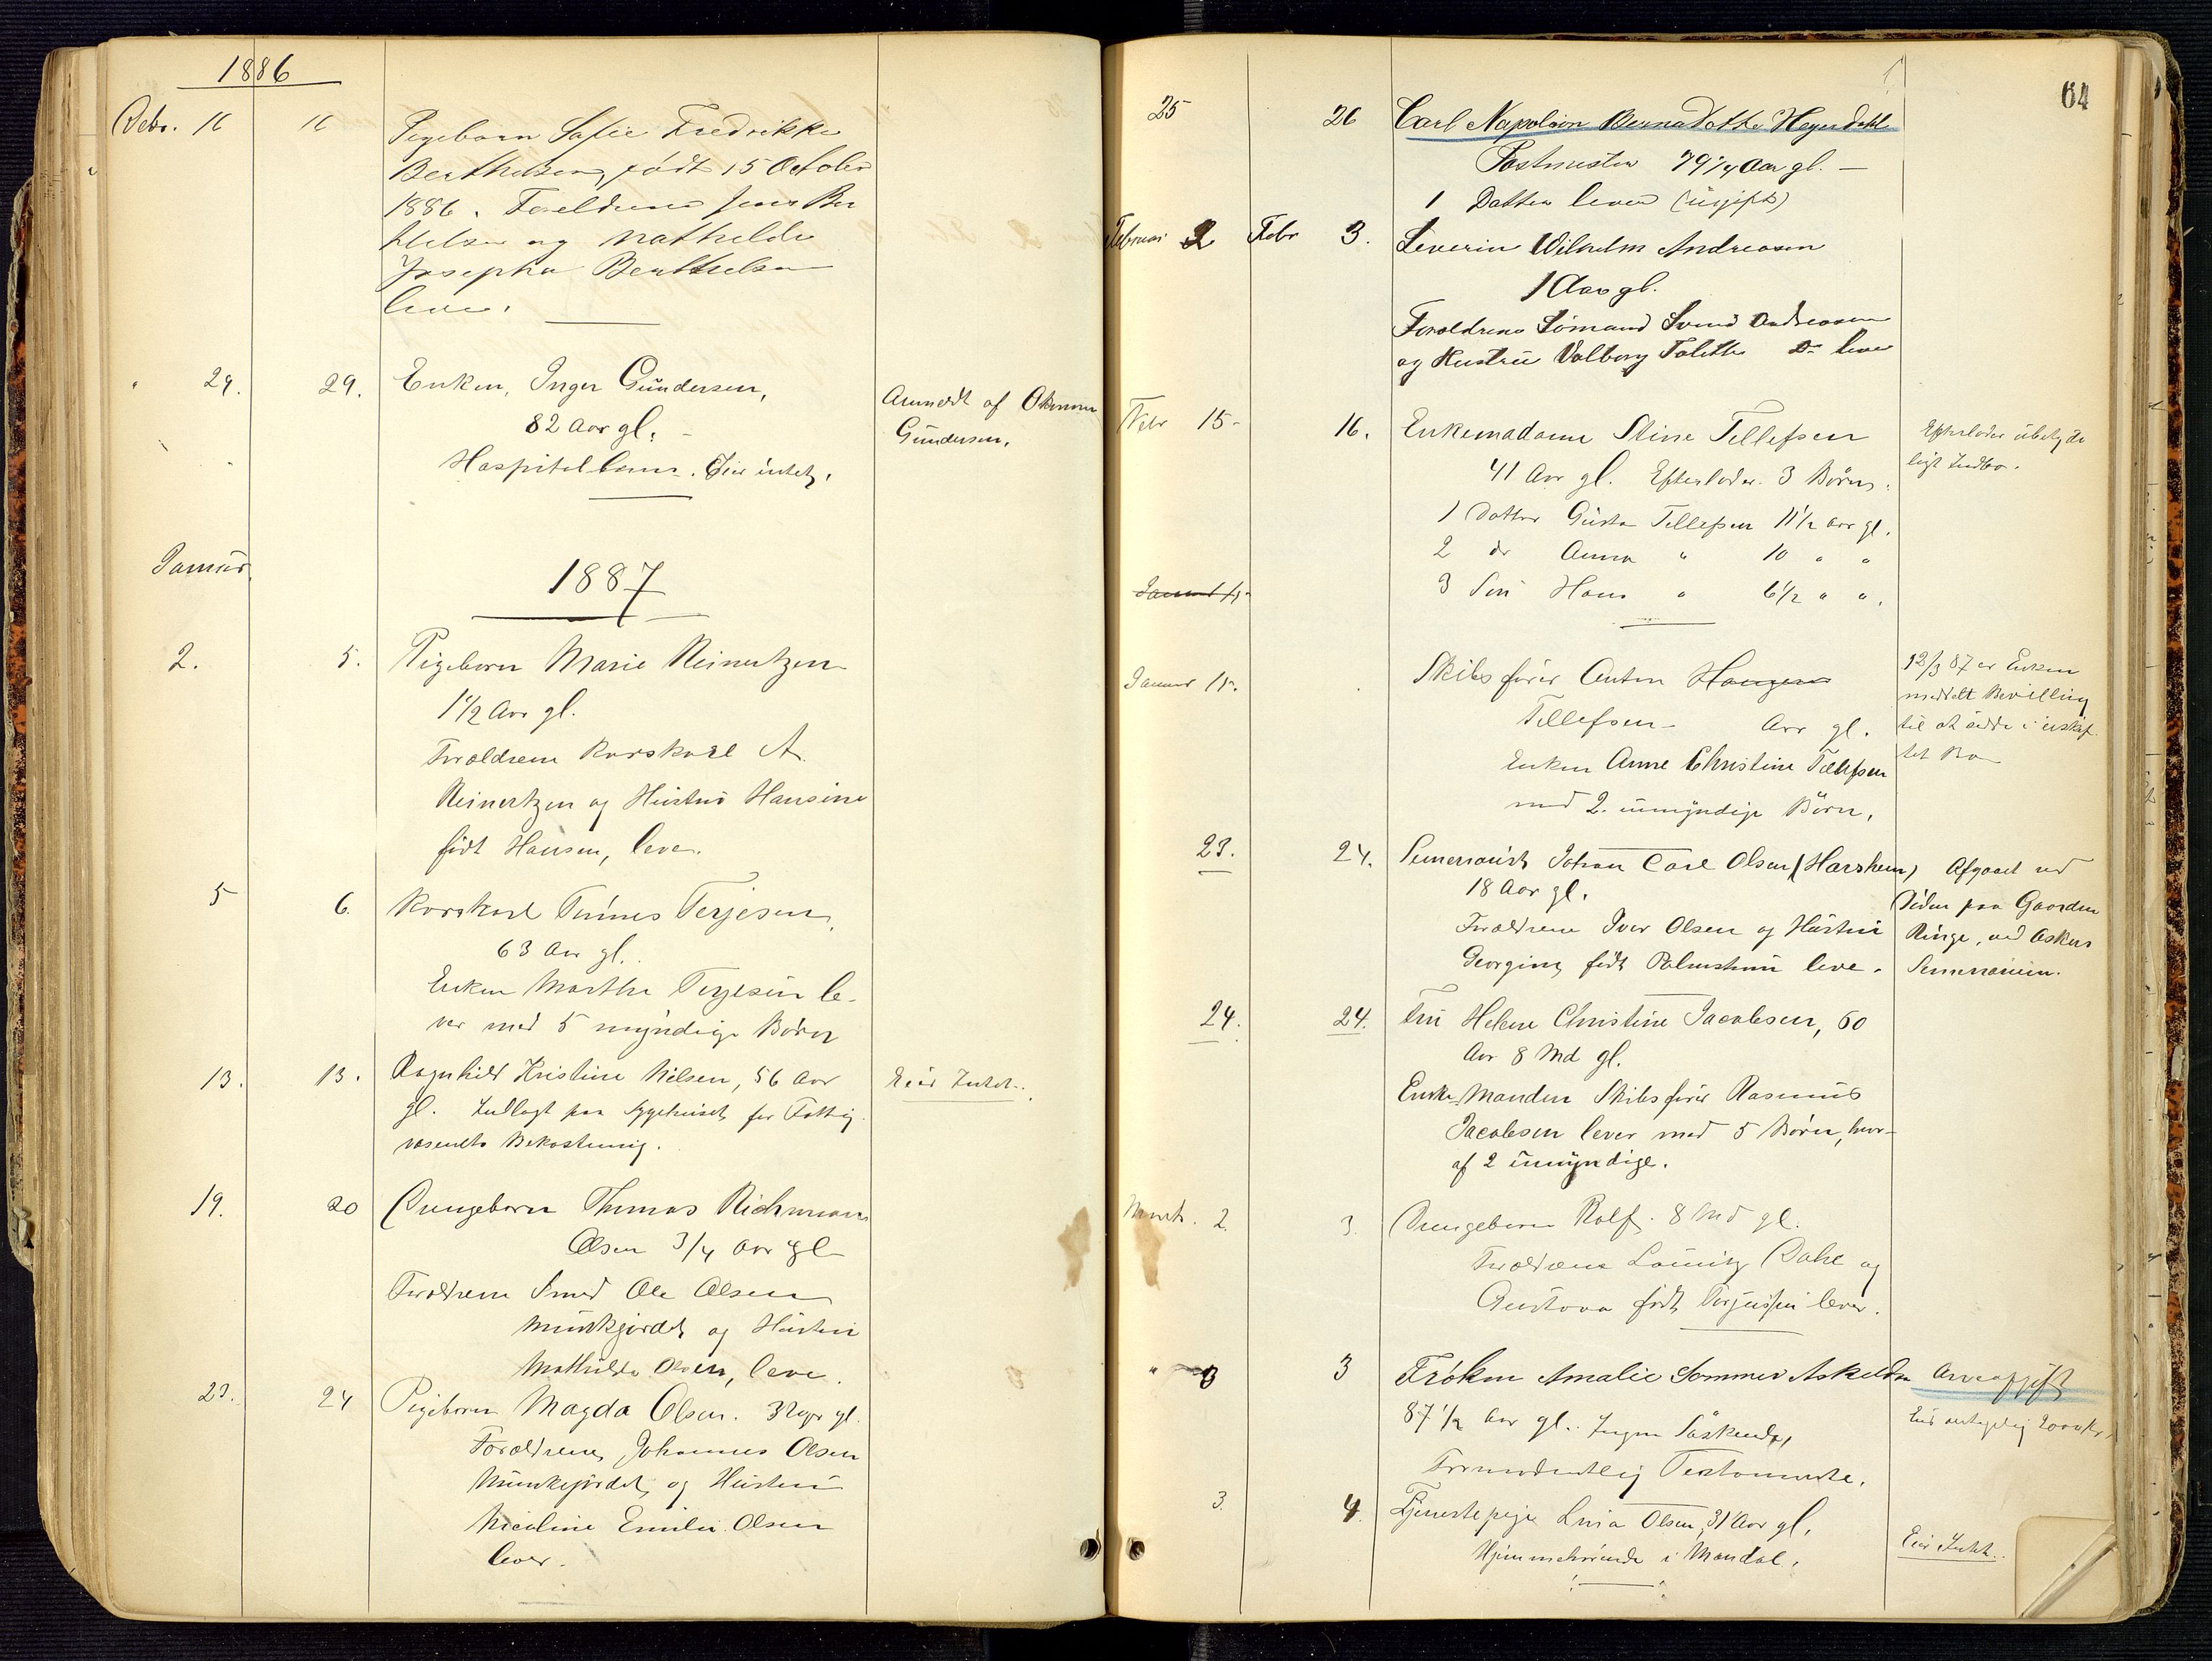 1886
Debr. 16 16 Pigebarn Sofie Fredrikke
Berthelsen, født 15 October
1886. Foreldrene Jens Ber
thelsen og Mathilde
Josepha Berthelsen
lever.
" 29. 29. Enken, Inger Gundersen,
82 Aar gl.
Hospitalslem. Eier intet.
Anmeldt af
Gundersen.
Januar
1887
2. 5. Pigebarn Marie Reinertzen
1 1/2 Aar gl.
Forældrene Korskarl A.
Reinertzen og Hustru Hansine
født Hansen, lever.
5 6. Korskarl Tønnes Terjesen,
63 Aar gl.
Enken Marthe Terjesen le-
ver med 5 myndige Børn
13. 13. Ragnhild Kristine Nilsen, 56 Aar
gl. Indlagt paa Sygehuset for Fattig-
væsenets Bekostning.
Eier Intet.
19. 20 Drengebarn Thomas Richmann
Olsen 3/4 Aar gl
Forældrene Smed Ole Olsen
Munkgjordet og Hustru
Mathilde Olsen, lever.
23. 24 Pigebarn Magda Olsen. 3 Uger gl.
Forældrene, Johannes Olsen
Munkejordet, og Hustru
Nicoline Emilie Olsen
lever.
64
25 26 Carl Napoleon Bernadotte Heyerdahl
Postmester 79 1/4 Aar gl. —
1 Datter lever (ugift)
Februar 2 Febr 3. Severin Wilhelm Andreasen
1 Aar gl.
Forældrene Sømand Svend Andreasen
og Hustru Valborg Tolette Do lever
Febr 15- 16. Enkemadame Stine Tellefsen
41 Aar gl. Efterlader 3 Børn.
1 Datter Gusta Tellefsen 11 1/2 Aar gl.
2 do Anna " 10 " "
3 Søn Hans " 6 1/2 " ".
Efterlader ubetyde
ligt Indbo.
Januar 15
Januar 15. Skibsfører Anton Hangen
Tellefsen Aar gl.
Enken Anne Christine Tellefsen
med 2 umyndige Børn.
12/3 87 er Enken
meddelt Bevilling
til at sidde i uskif
tet Bo
23. 24. Seminarist Johan Carl Olsen (Harsheim)
18 Aar gl.
Forældrene Iver Olsen og Hustru
Georgine født lever.
Afgaaet ved
Døden paa Gaarden
Ringe, ved Askers
Seminarium.
24. 24. Fru Helene Christine Jacobsen, 60
Aar 8 Md gl.
Enkemanden Skibsfører Rasmus
Jacobsen lever med 5 Børn, hvor-
af 2 umyndige.
Marts. 2. 3. Drengebarn Rolf. 8 Md gl.
Forældrene Lauritz Dahl og
Gustava født Torjussen lever.
" 3 3 Frøken Amalie Sommer Askildsen
87 1/2 Aar gl. Ingen Søskende,
Formodentlig Testamente.
Arveafgift
Eier antagelig 2000 Kr.
3. 4. Tjenestepige Lina Olsen, 31 Aar gl,
Hjemmehørende i Mandal.
Eier Intet.